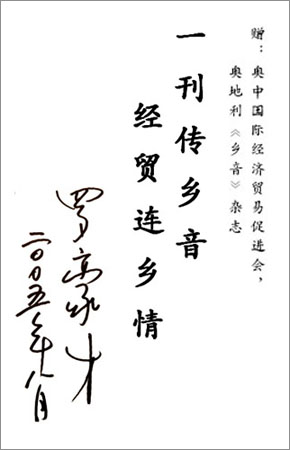 赠：奥中国际经济贸易促进会，
奥地利《乡音》杂志
一刊传乡音
经贸连乡情
罗豪才
二〇〇五年八月